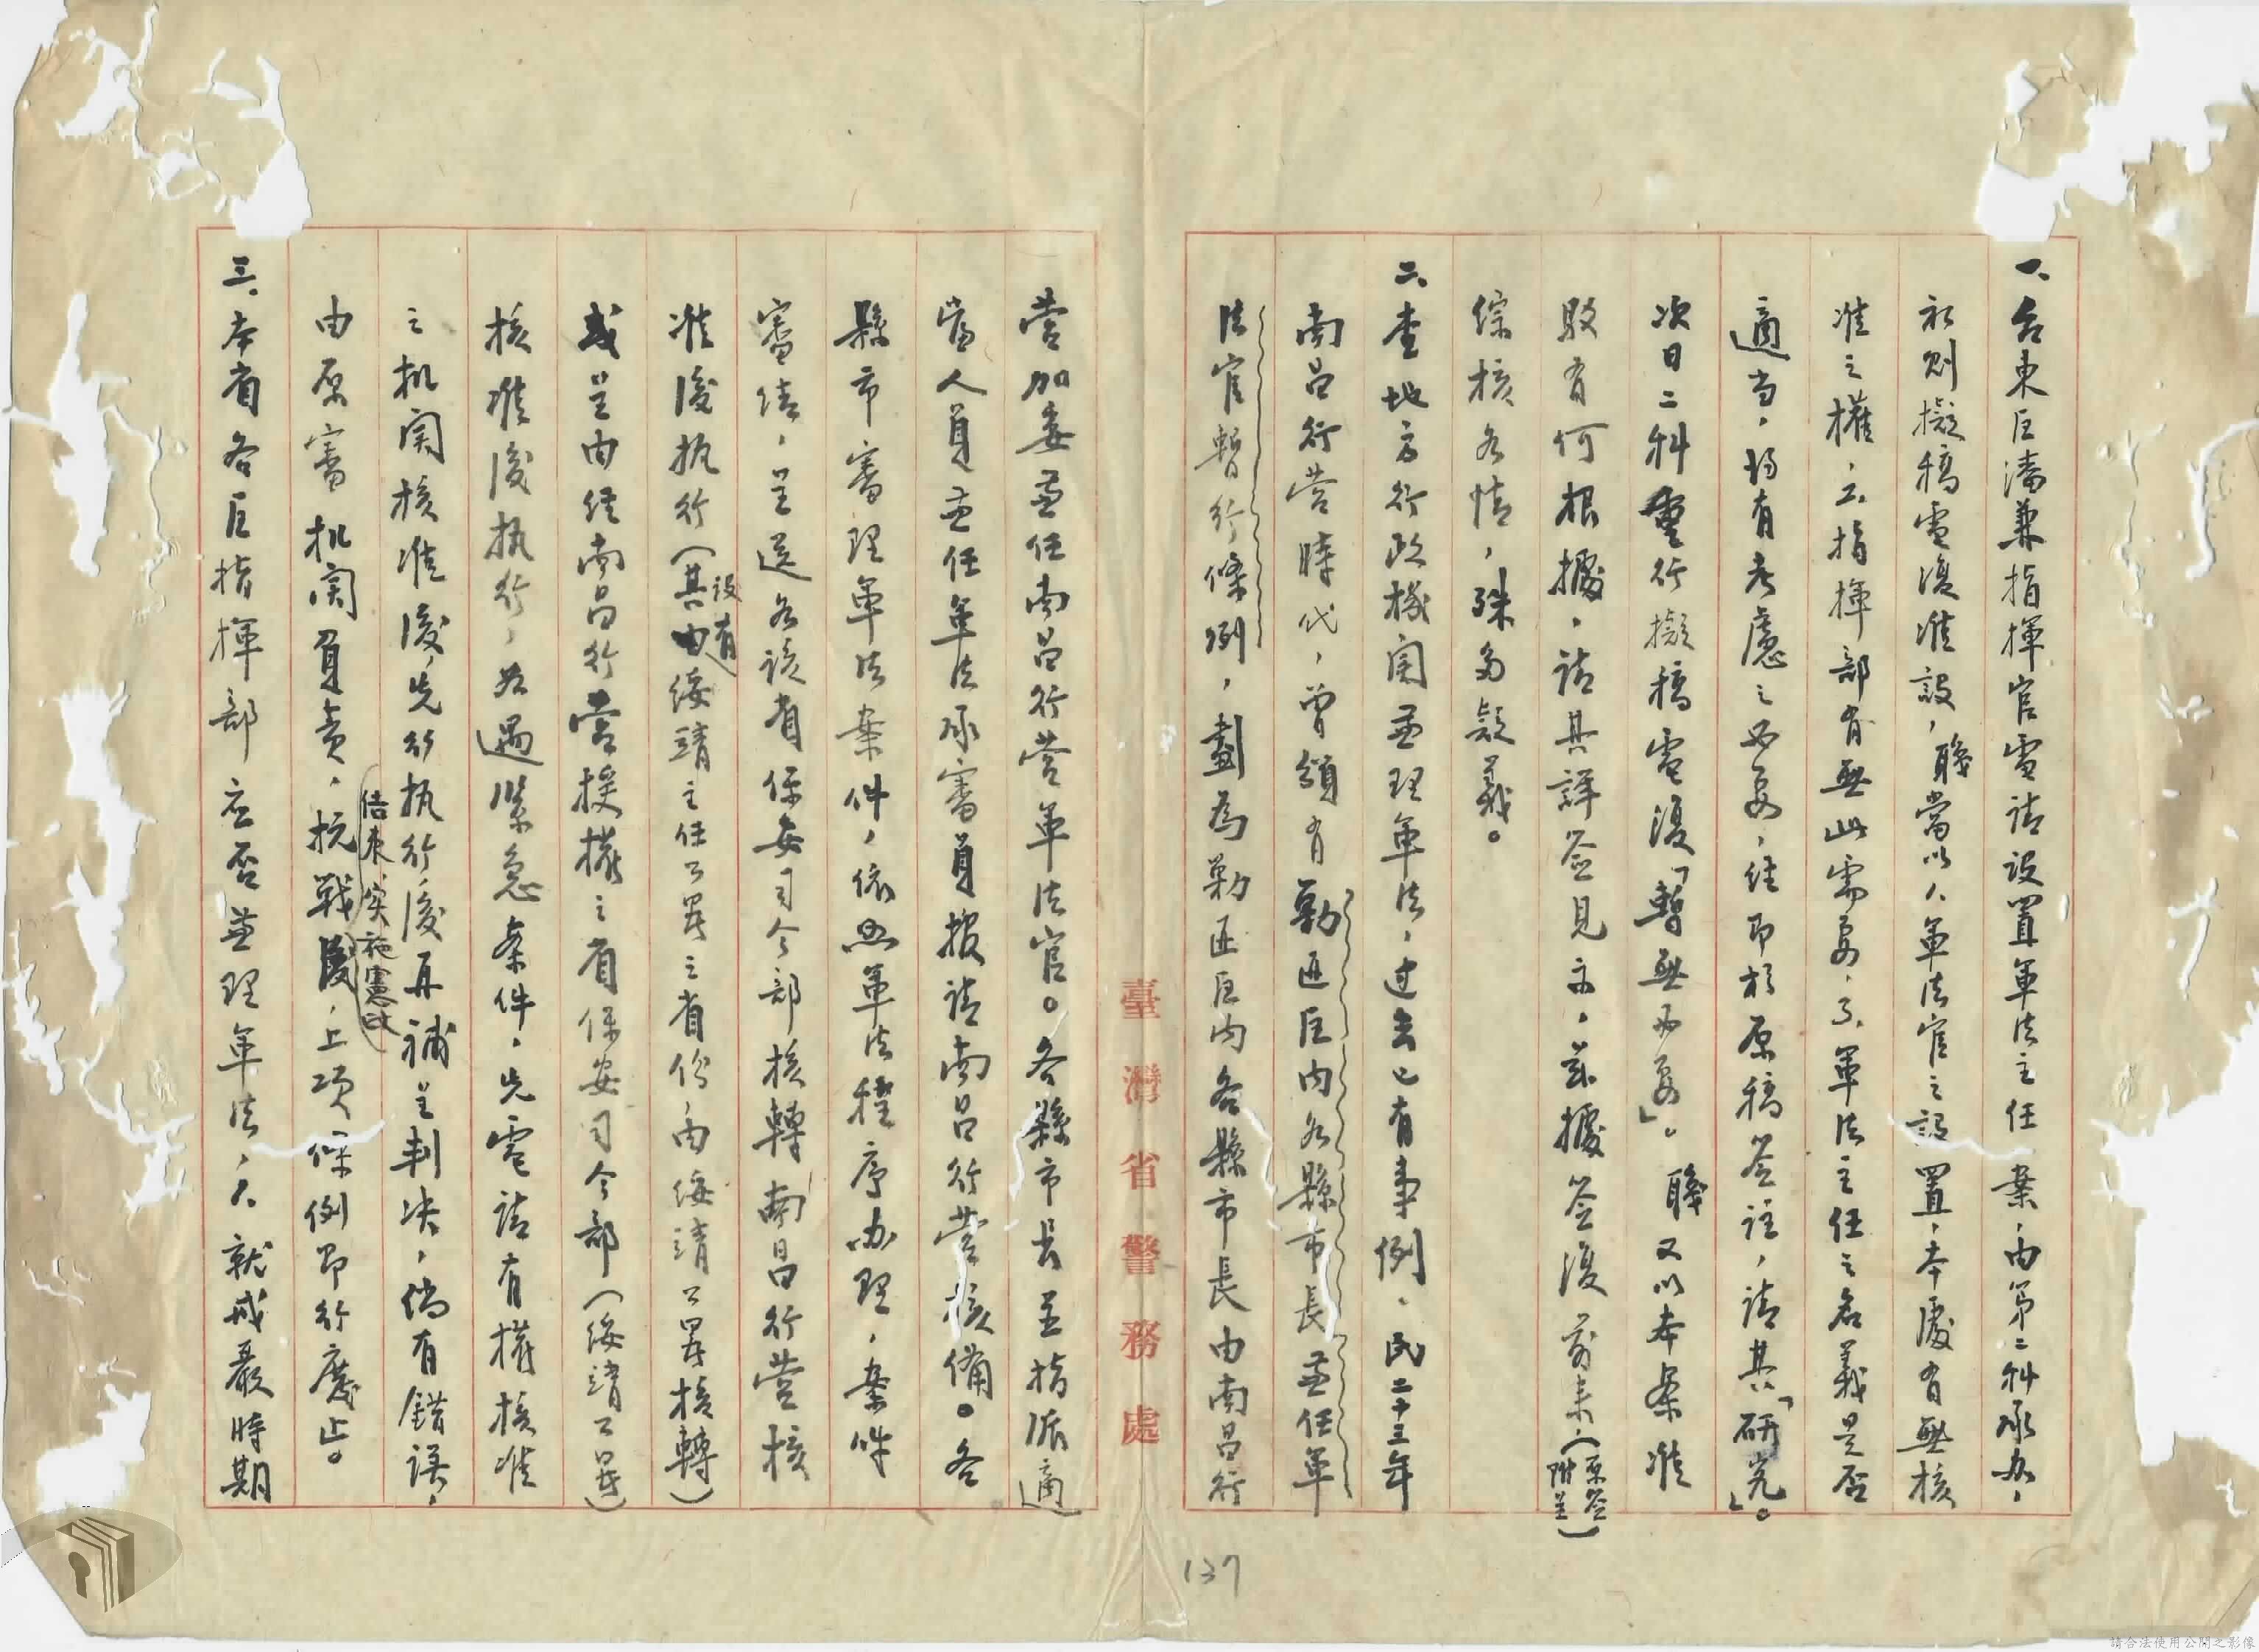 一、台東區潘兼指揮官電請設置軍法主任一案，由第二科承办，
初則擬稿電復准設，職當以人、軍法官之設置，本處有無核
准之權，ㄊ、指揮部有無此需要，ㄋ、軍法主任之名義是否
適当，均有考慮之必要，經即於原稿簽註，請其「研究」。
次日二科重行擬稿電復「暫無必要」。職又以本案准
駁有何根據，請其詳簽見示，茲據簽復前来，（原簽附呈）
綜核各情，殊多疑義。
二、查地方行政機関兼理軍法，过去已有事例，民二十三年
南昌行營時代，曾頒有勦匪區内各縣市長兼任軍
法官暫行條例，劃為勦匪區内各縣市長由南昌行
營加委兼任南昌行营軍法官。各縣市長並指派適
當人員兼任軍法承審員報請南昌行營核備。各
縣市審理軍法案件，依照軍法程序办理，案件
審結，呈送各該省保安司令部核轉南昌行營核
准後执行（其設有綏靖主任公署之省份，由綏靖公署核轉）
或呈由經南昌行營授權之省保安司令部（綏靖公署）
核准後执行，如遇緊急案件，先電請有權核准
之机関核准後，先行执行，後再補呈判决，倘有錯誤，
由原審机関負責，抗戰結束，实施憲政後，上項條例即行廢止。
三、本省各區指揮部应否兼理軍法，人、就戒嚴時期
臺灣省警務處
137
請合法使用公開之影像